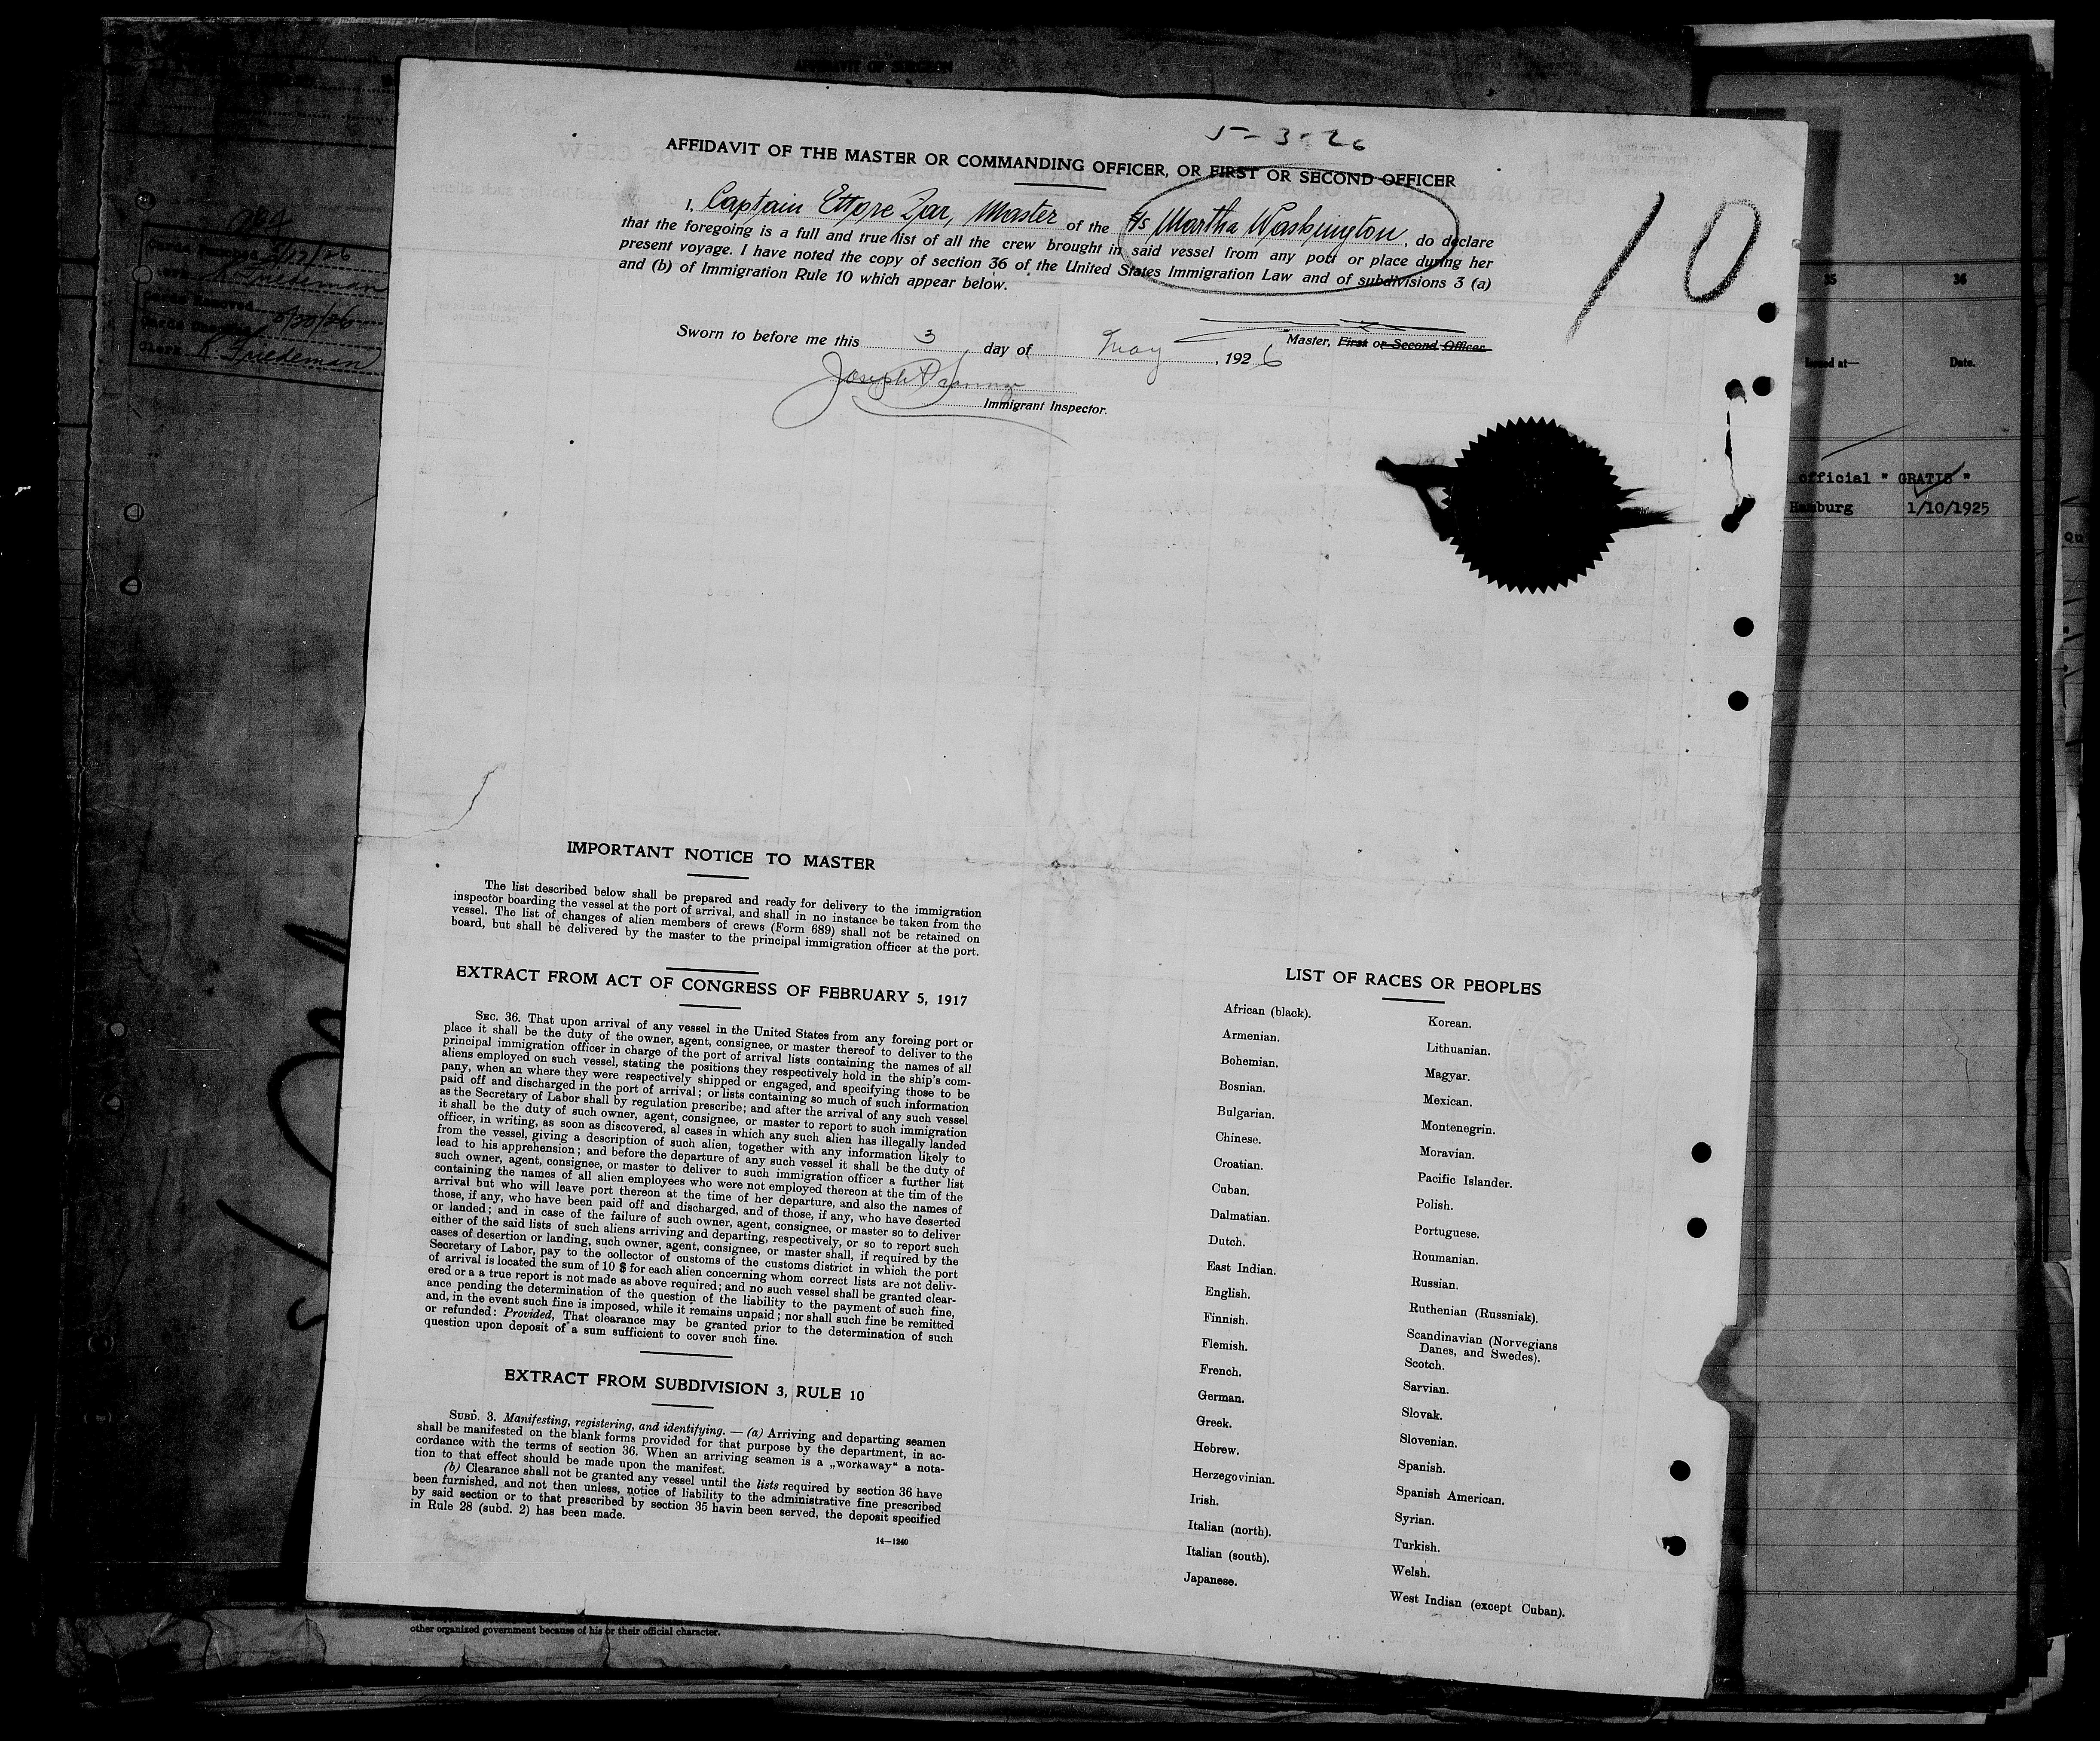 AFFIDAVIT OF SURGEON
5-3-26
AFFIDAVIT OF THE MASTER OR COMMANDING OFFICER, OR FIRST OR SECOND OFFICER
10
I, Captain Ettore Zar, Master of the S/s Martha Washington, do declare
that the foregoing is a full and true list of all the crew brought in said vessel from any port or place during her
present voyage. I have noted the copy of section 36 of the United States Immigration Law and of subdivisions 3 (a)
and (b) of Immigration Rule 10 which appear below.
Master, First or Second Officer
Sworn to before me this 3 day of May, 1926
Joseph
Immigrant Inspector.
5/17/26
Friedeman
5/20/26
Clerk R Friedeman
35 36
Issued at— Date.
official " GRATIS "
Hamburg 1/10/1925
IMPORTANT NOTICE TO MASTER
The list described below shall be prepared and ready for delivery to the immigration
inspector boarding the vessel at the port of arrival, and shall in no instance be taken from the
vessel. The list of changes of alien members of crews (Form 689) shall not be retained on
board, but shall be delivered by the master to the principal immigration officer at the port.
EXTRACT FROM ACT OF CONGRESS OF FEBRUARY 5, 1917
SEC. 36. That upon arrival of any vessel in the United States from any foreing port or
place it shall be the duty of the owner, agent, consignee, or master thereof to deliver to the
principal immigration officer in charge of the port of arrival lists containing the names of all
aliens employed on such vessel, stating the positions they respectively hold in the ship's com-
pany, when an where they were respectively shipped or engaged, and specifying those to be
paid off and discharged in the port of arrival; or lists containing so much of such information
as the Secretary of Labor shall by regulation prescribe; and after the arrival of any such vessel
it shall be the duty of such owner, agent, consignee, or master to report to such immigration
officer, in writing, as soon as discovered, al cases in which any such alien has illegally landed
from the vessel, giving a description of such alien, together with any information likely to
lead to his apprehension; and before the departure of any such vessel it shall be the duty of
such owner, agent, consignee, or master to deliver to such immigration officer a further list
containing the names of all alien employees who were not employed thereon at the tim of the
arrival but who will leave port thereon at the time of her departure, and also the names of
those, if any, who have been paid off and discharged, and of those, if any, who have deserted
or landed; and in case of the failure of such owner, agent, consignee, or master so to deliver
either of the said lists of such aliens arriving and departing, respectively, or so to report such
cases of desertion or landing, such owner, agent, consignee, or master shall, if required by the
Secretary of Labor, pay to the collector of customs of the customs district in which the port
of arrival is located the sum of 10 $ for each alien concerning whom correct lists are not deliv-
ered or a a true report is not made as above required; and no such vessel shall be granted clear-
ance pending the determination of the question of the liability to the payment of such fine,
and, in the event such fine is imposed, while it remains unpaid; nor shall such fine be remitted
or refunded: Provided, That clearance may be granted prior to the determination of such
question upon deposit of a sum sufficient to cover such fine.
EXTRACT FROM SUBDIVISION 3, RULE 10
SUBD. 3. Manifesting, registering, and identifying. — (a) Arriving and departing seamen
shall be manifested on the blank forms provided for that purpose by the department, in ac-
cordance with the terms of section 36. When an arriving seamen is a „workaway“ a nota-
tion to that effect should be made upon the manifest.
(b) Clearance shall not be granted any vessel until the lists required by section 36 have
been furnished, and not then unless, notice of liability to the administrative fine prescribed
by said section or to that prescribed by section 35 havin been served, the deposit specified
in Rule 28 (subd. 2) has been made.
14—1240
LIST OF RACES OR PEOPLES
African (black).
Armenian.
Bohemian.
Bosnian.
Bulgarian.
Chinese.
Croatian.
Cuban.
Dalmatian.
Dutch.
East Indian.
English.
Finnish.
Flemish.
French.
German.
Greek.
Hebrew.
Herzegovinian.
Irish.
Italian (north).
Italian (south).
Japanese.
Korean.
Lithuanian.
Magyar.
Mexican.
Montenegrin.
Moravian.
Pacific Islander.
Polish.
Portuguese.
Roumanian.
Russian.
Ruthenian (Russniak).
Scandinavian (Norvegians
Danes, and Swedes).
Scotch.
Sarvian.
Slovak.
Slovenian.
Spanish.
Spanish American.
Syrian.
Turkish.
Welsh.
West Indian (except Cuban).
other organized government because of his or their official character.